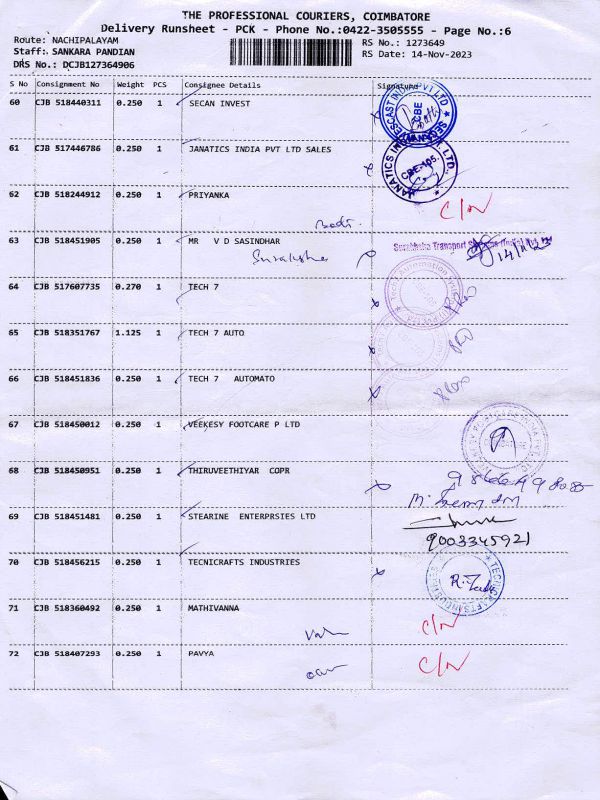 THE PROFESSIONAL COURIERS, COIMBATORE
Delivery Runsheet - PCK - Phone No.:0422-3505555 - Page No.:6
Route: NACHIPALAYAM
RS No.: 1273649
Staff: SANKARA PANDIAN
RS Date: 14-Nov-2023
DRS No.: DCJB127364906
S No Consignment No Weight PCS Consignee Details Signature
60 CJB 518440311 0.250 1 SECAN INVEST
61 CJB 517446786 0.250 1 JANATICS INDIA PVT LTD SALES
CBE-105.
62 CJB 518244912 0.250 1 PRIYANKA
C/N
63 CJB 518451905 0.250 1 MR V D SASINDHAR
Suraksha
64 CJB 517607735 0.270 1 TECH 7
65 CJB 518351767 1.125 1 TECH 7 AUTO
66 CJB 518451836 0.250 1 TECH 7 AUTOMATO
67 CJB 518450012 0.250 1 VEEKESY FOOTCARE P LTD
68 CJB 518450951 0.250 1 THIRUVEETHIYAR COPR
69 CJB 518451481 0.250 1 STEARINE ENTERPRSIES LTD
9003345921
70 CJB 518456215 0.250 1 TECNICRAFTS INDUSTRIES
71 CJB 518360492 0.250 1 MATHIVANNA
C/N
72 CJB 518407293 0.250 1 PAVYA
C/N